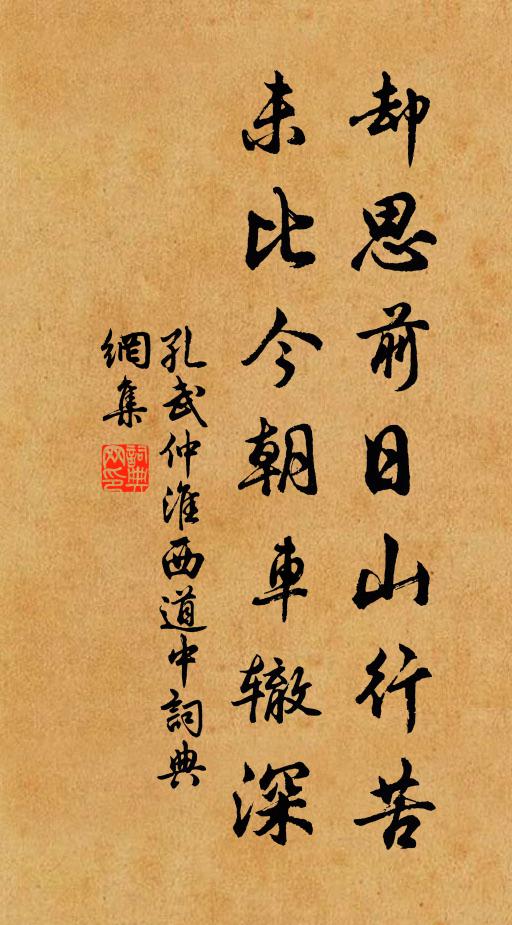 却思前日山行苦
未比今朝車辙深
孔武仲淮西道中詞典
網集
詞典网印